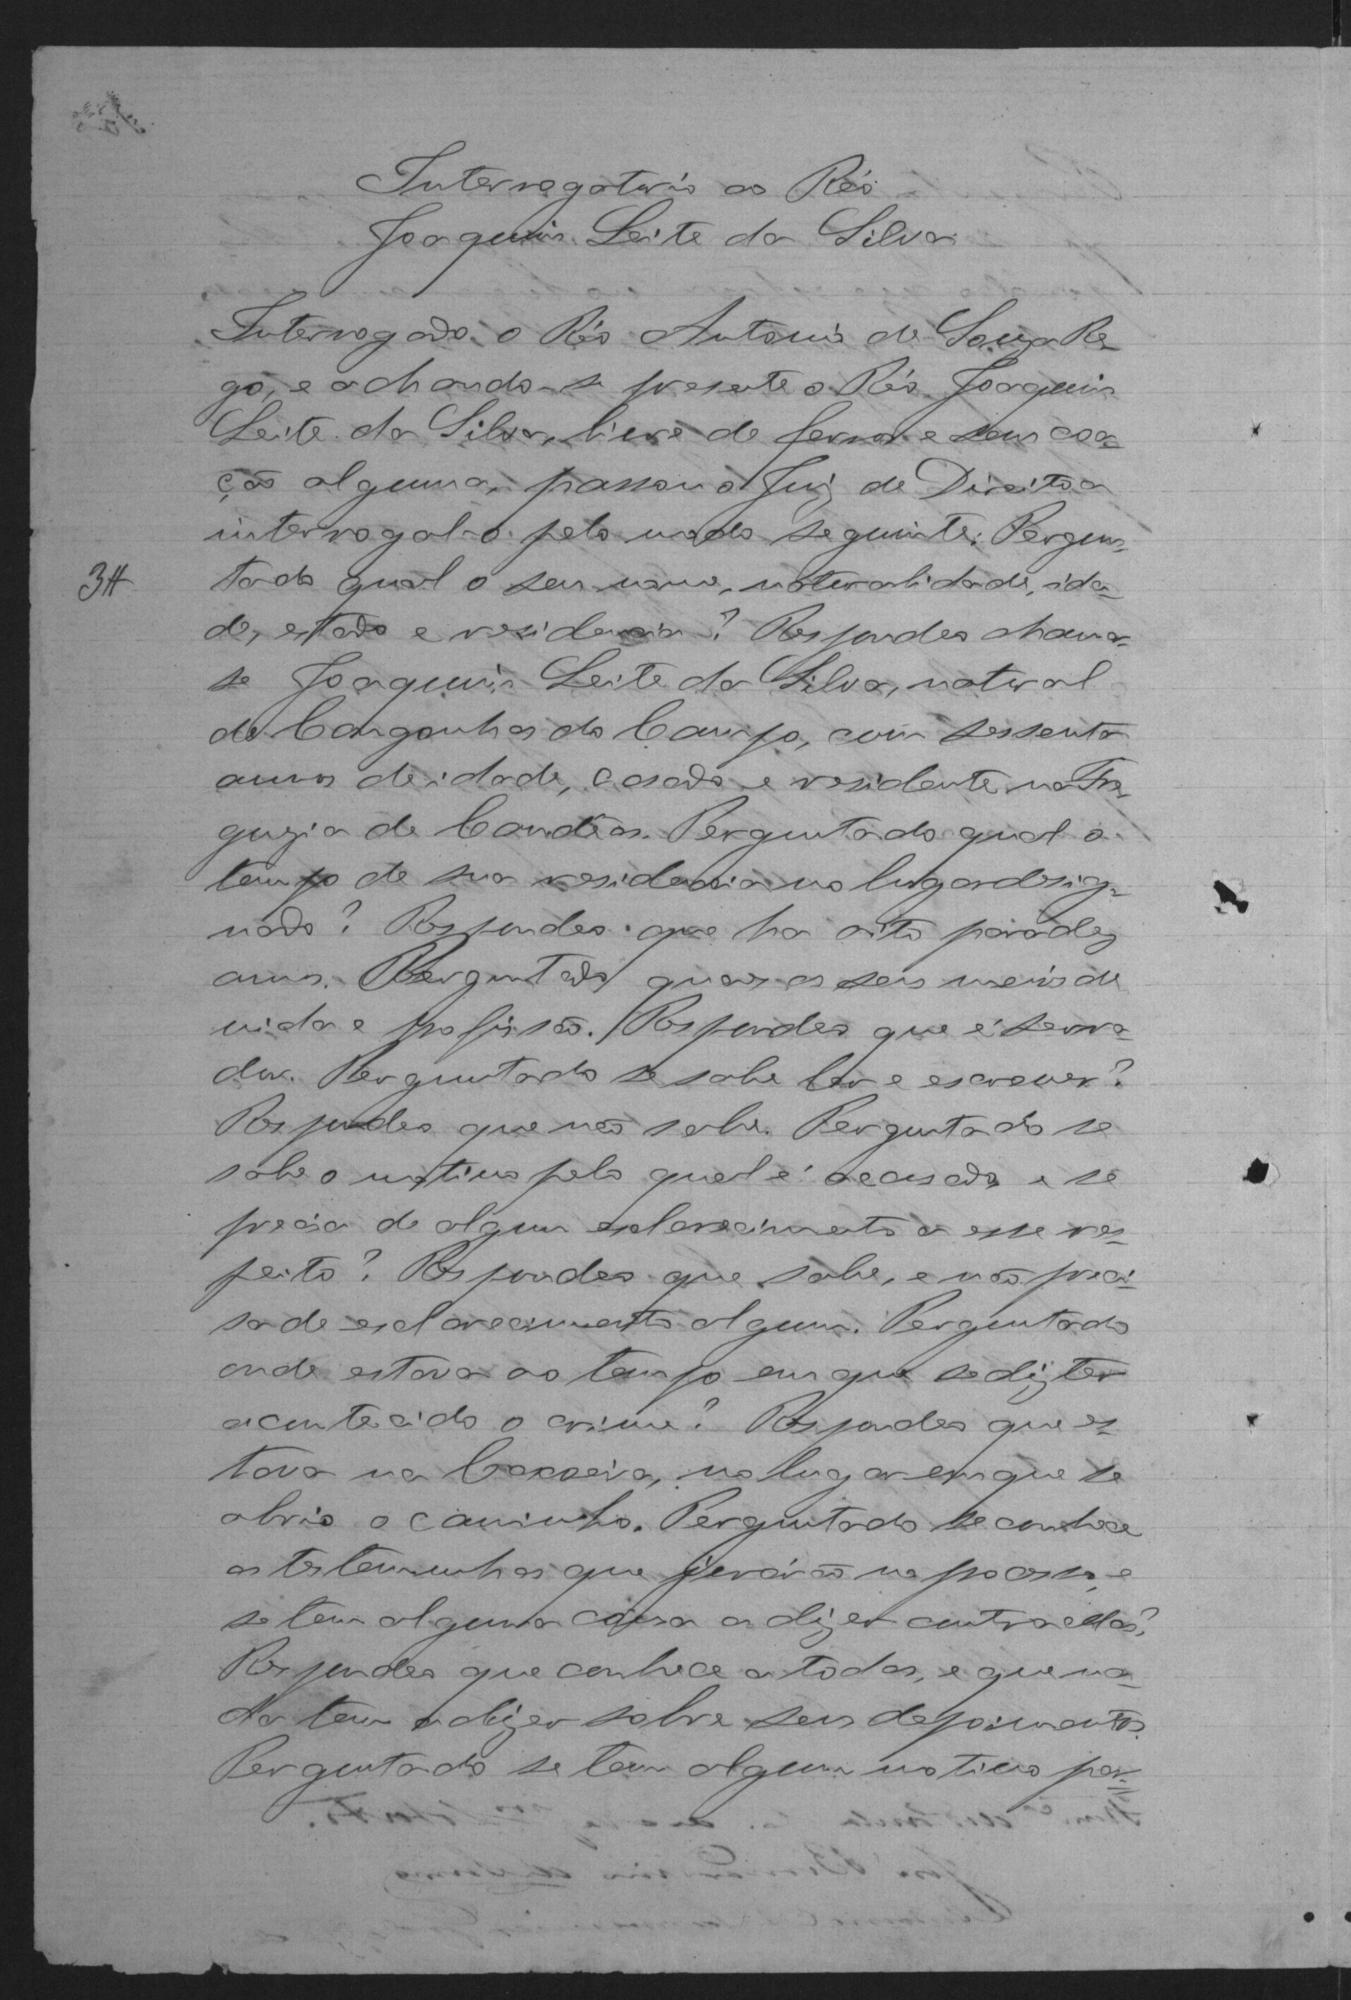 Interrogatorio ao Réo
Joaquim Leite da Silva
Interrogado o Réo Antonio de Souza Re-
go, e achando-se presente o Réo Joaquim
Leite da Silva, livre de ferros e sem coa-
ção alguma, passou o Juiz de Direito a
interrogal-o pelo modo seguinte: Pergun-
tado qual o seu nome, naturalidade, ida-
de, estado e residencia? Respondeo chamar-
se Joaquim Leite da Silva, natural
de Congonhas do Campo, com sessenta
annos de idade, casado e residente na Fre-
guezia de Candêas. Perguntado qual o
tempo de sua residencia no lugar desig-
nado? Respondeo que ha oito para dez
annos. Perguntado quaes os seus meios de
vida e profissão. Respondeo que é serra-
dor. Perguntado se sabe ler e escrever?
Respondeo que não sabe. Perguntado se
sabe o motivo pelo qual é accusado, e se
precisa de algum esclarecimento a esse res-
peito? Respondeo que sabe, e não preci-
sa de esclarecimento algum. Perguntado
onde estava ao tempo em que se diz ter
acontecido o crime? Respondeo que es-
tava na Capoeira, no lugar em que se
abrio o caminho. Perguntado se conhece
as testemunhas que jurárão no processo, e
se tem alguma cousa a dizer contra ellas?
Respondeo que conhece a todas, e que na-
da tem a dizer sobre seus depoimentos.
Perguntado se tem algum motivo par-